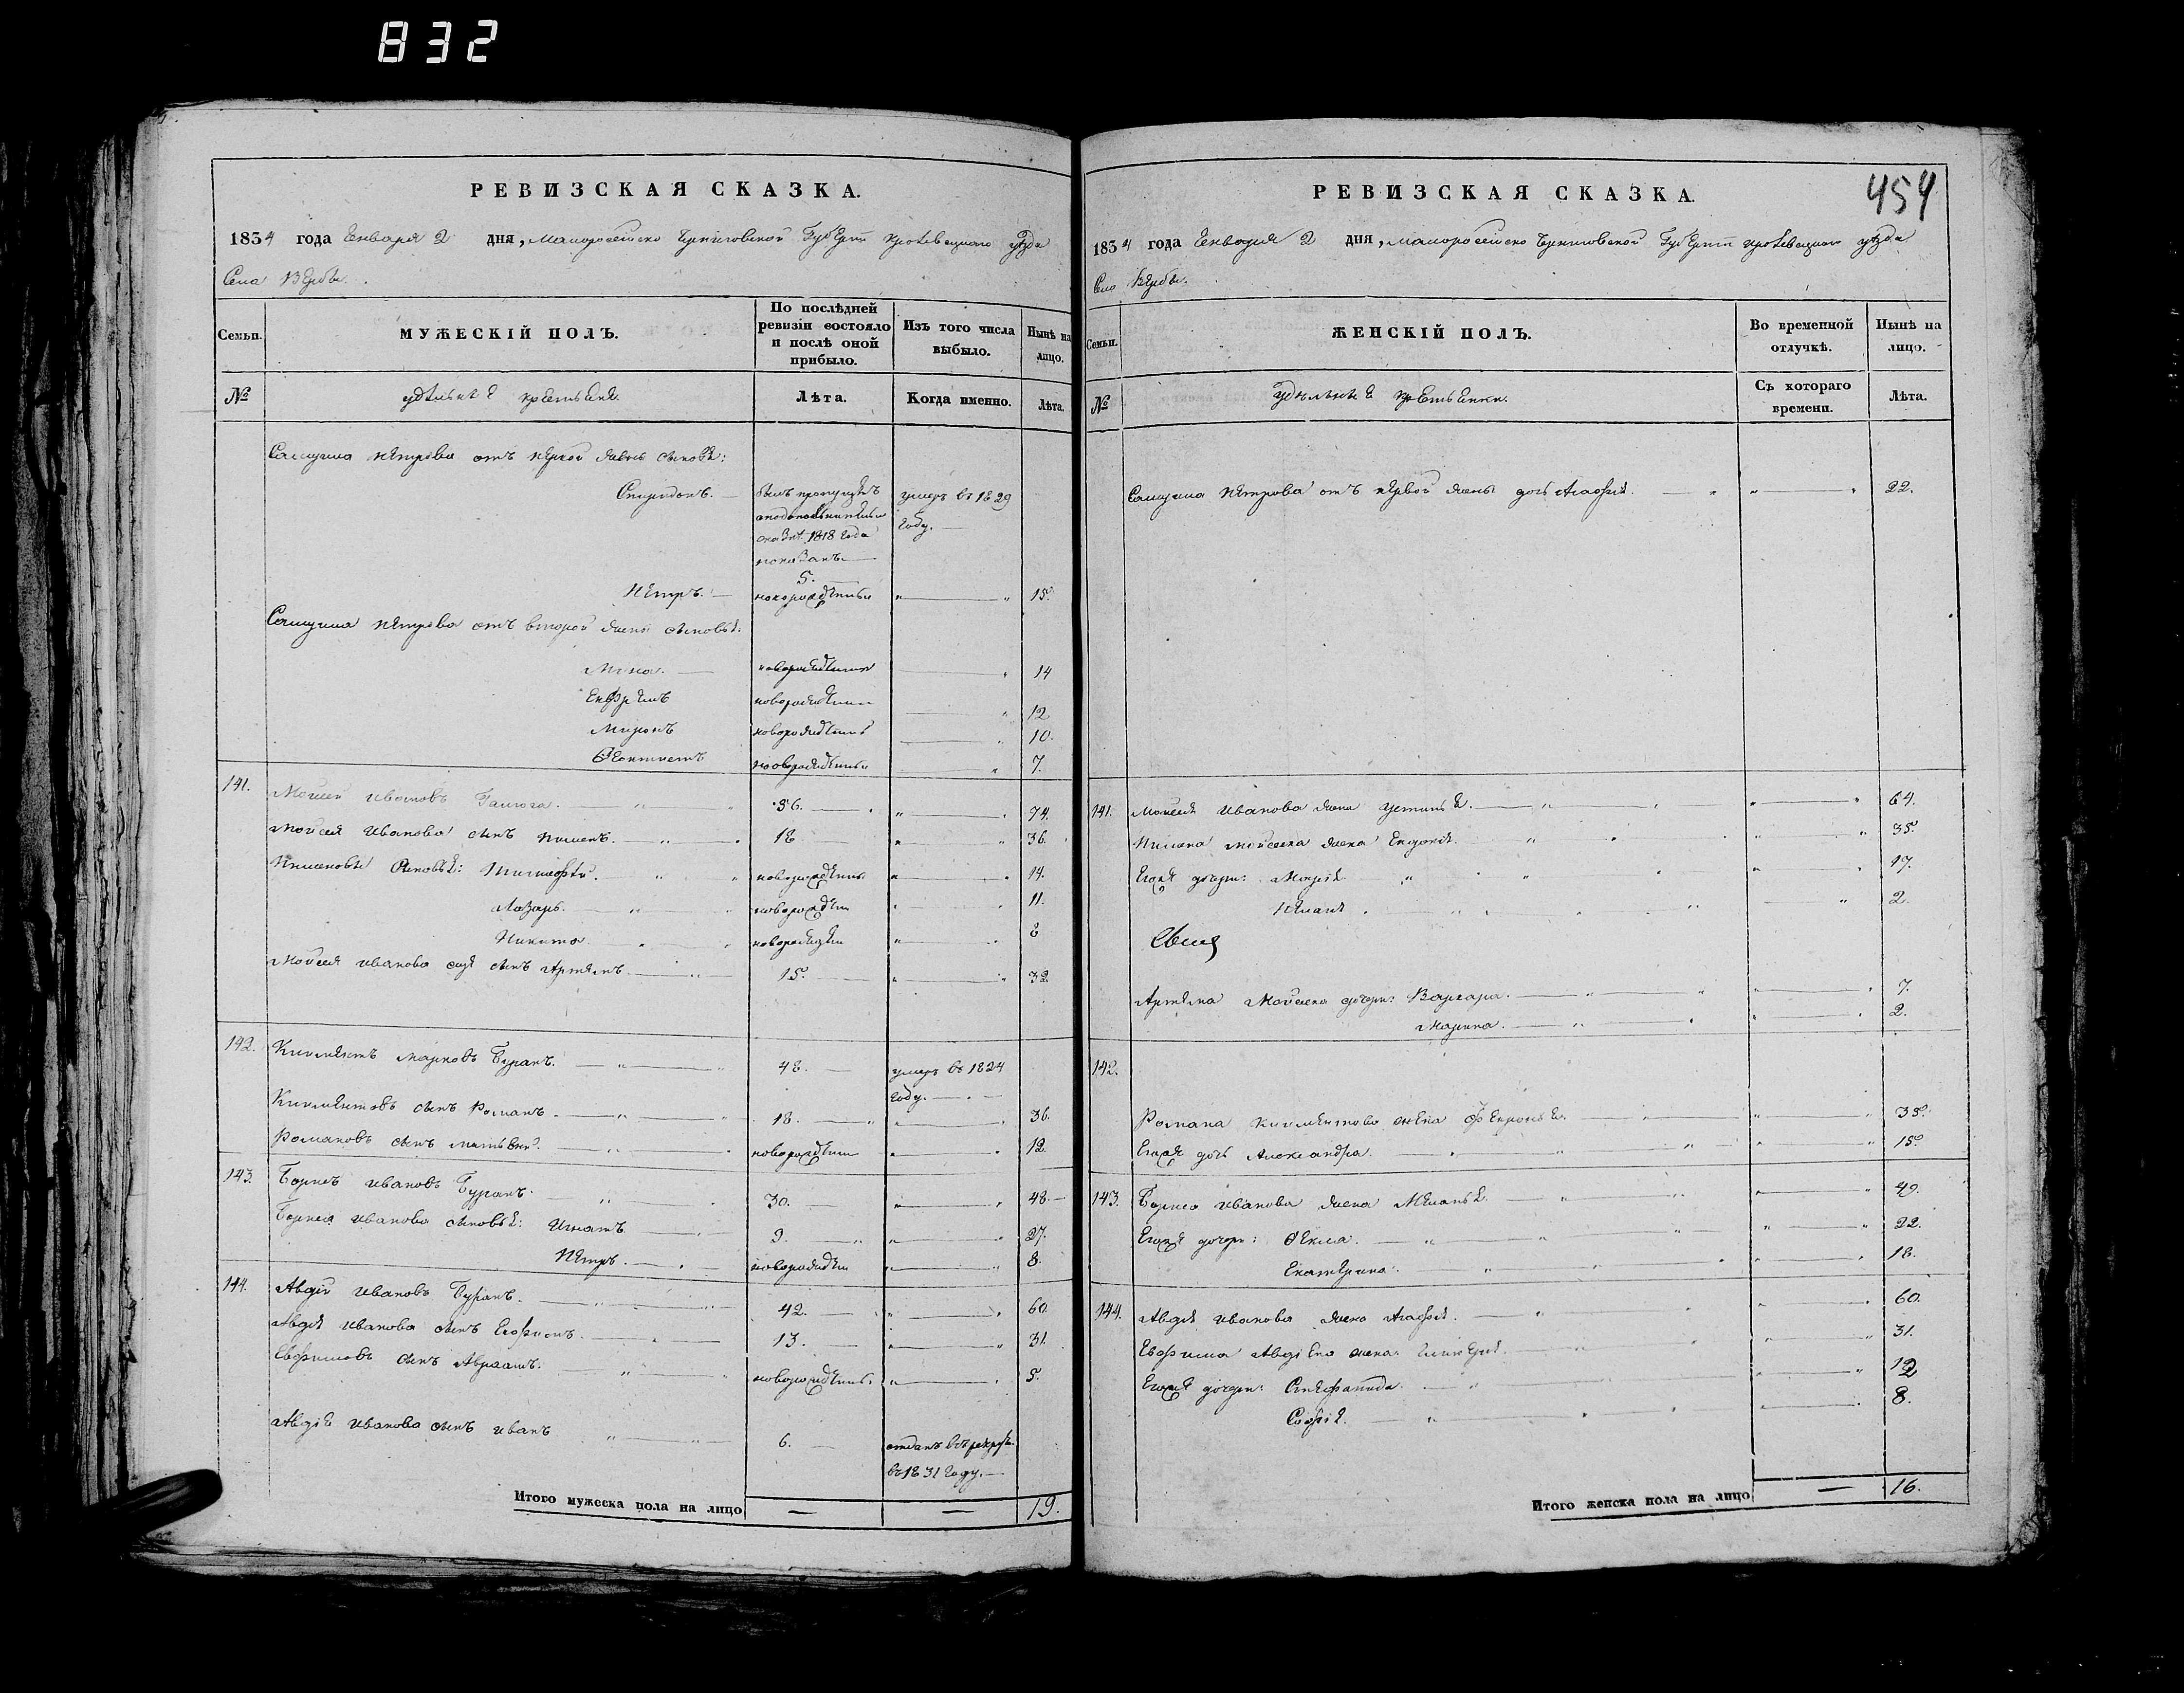 832
РЕВИЗСКАЯ СКАЗКА.
1834 года Енваря 2 дня, малоросейско Черниговской Губерти кролевецкаго уезда
Села Вербы.
Семьи.
МУЖЕСКІЙ ПОЛЪ.
По послѣдней ревизіи состояло и послѣ оной прибыло.
Изъ того числа выбыло.
Нынѣ на лицо.
№
удѣльніе крестьяне.
Лѣта.
Когда именно.
Лѣта.
петрова отъ первой жены сыновья:
Спиридонъ. — былъ пропущенъ умеръ въ 1829
году. —
1818 года
показанъ. —
5. —
Петръ. — новорожденны 15.
петрова отъ второй жены сыновья:
Мина. — новорожденны 14
новорожденны 12
Миронъ новорожденны 10.
Феоктистъ новорожденны 7.
141. Моисей Ивановъ Галюга. 56. 74.
Моисея Иванова сынъ Пименъ. 18 36.
Пименовы сыновья: Тимофей. новорожденны 14.
Лазарь. новорожден 11.
Никита. новорожден 8
Моисея Иванова еще сынъ Артемъ 15. 32
142. Климентъ марковъ Буранъ. 48. умеръ въ 1824
году. —
Климентовъ сынъ Романъ. 18. 36.
Романовъ сынъ матвей. новорожден 12
143. Борисъ Ивановъ Буранъ. 30. 48.
Бориса Иванова сыновья: Игнатъ 9. 27.
Петръ. новорожден 8.
144. Авдій Ивановъ Буранъ. 42. 60
Авдія Иванова сынъ Евфимъ. 13. 31.
Евфимовъ сынъ Авраамъ. новорожденны 5.
Авдія Иванова сынъ иванъ 6. отданъ въ рекруты
въ 1831 году. —
Итого мужеска пола на лицо — — 19.
454
РЕВИЗСКАЯ СКАЗКА.
1834 года Енваря 2 дня, малоросейско Черниговской Губерти кролевецкаго уезда
Села Вербы.
Семьи.
ЖЕНСКІЙ ПОЛЪ.
Во временной отлучкѣ.
Нынѣ на лицо.
№
удѣльніе крестьянки.
Съ котораго времени.
Лѣта.
петрова отъ первой жены дочь Агафія. 22.
141. Моисея Иванова жена Устинья. 64.
Пимена Моисеева жена Евдокія. 35.
Егоже дочери: Марія 17.
2.
Артема Моисеева дочери: Варвара. 7.
Марина. 2.
142.
Романа Климентова жена Февронья. 35.
Егоже дочь Александра. 15.
143. Бориса Иванова жена Меланья. 49.
Егоже дочери: Фекла. 22.
Екатерина. 18.
144. Авдія Иванова жена Агафія. 60.
Евфима Авдіева жена Гликерія. 31.
Егоже дочери: Стефанида. 12
Софія. 8.
Итого женска пола на лицо — 16.